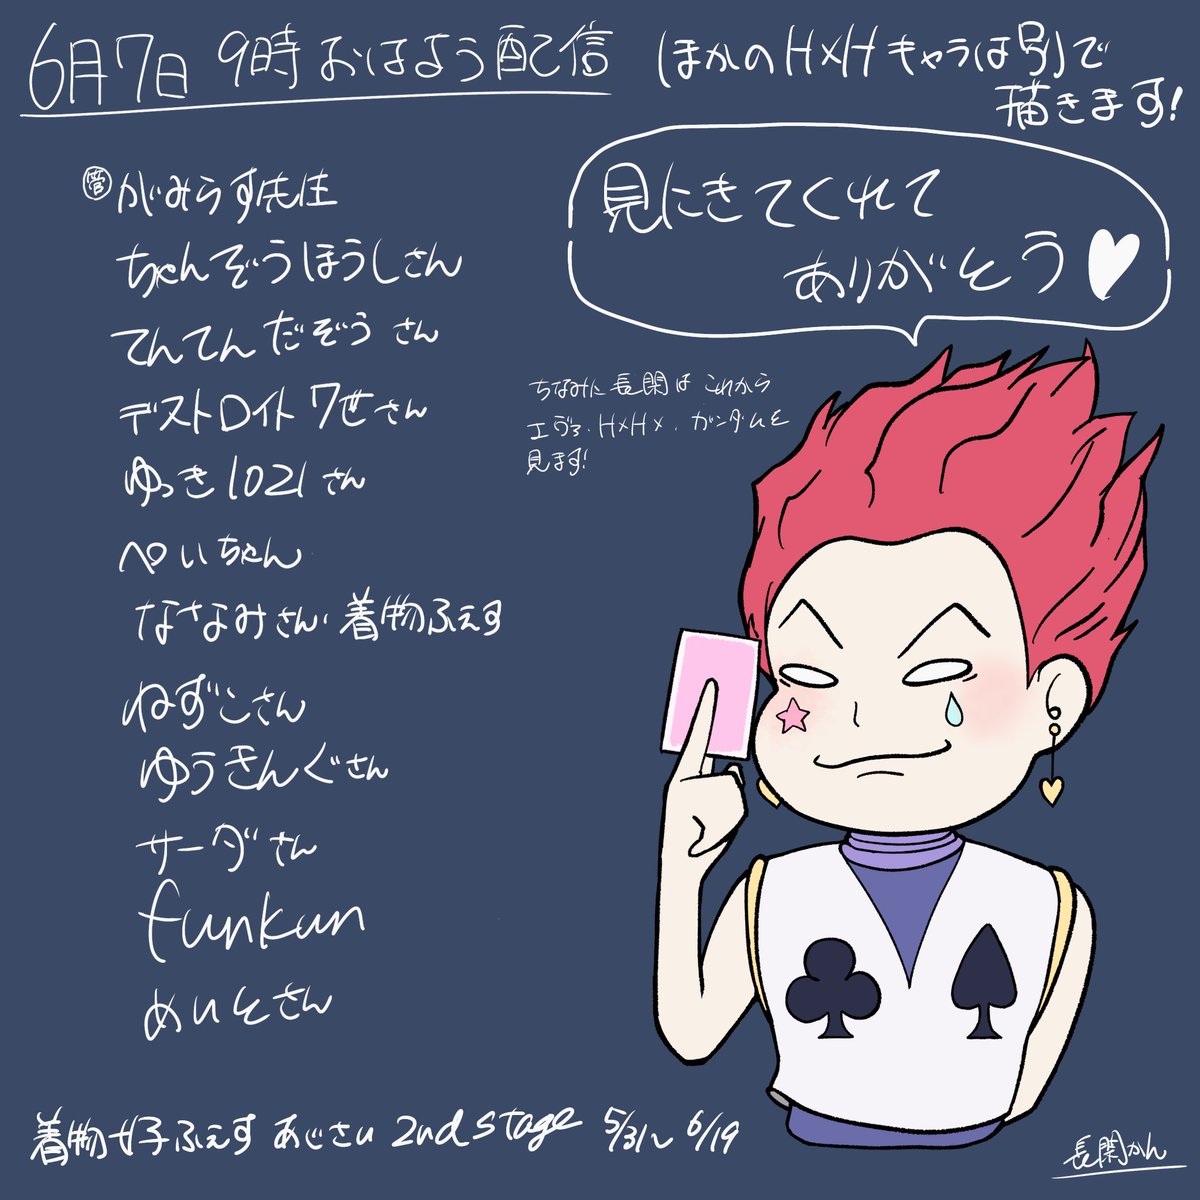 6月7日 9時 おはよう配信
ほかのH×Hキャラは別で
描きます!
見にきてくれて
ありがとう♥
管 がみらす先生
ちゃんぞうほうしさん
てんてんだぞうさん
デストロイト7世さん
ゆっき1021さん
ぺいちゃん
ななみさん・着物ふぇす
ねずこさん
ゆうきんぐさん
サーダさん
funkun
めいとさん
ちなみに長関はこれから
エヴァ・H×H・ガンダムを
見ます!
着物女子ふぇす あじさい 2nd stage 5/31〜6/19
長関かん